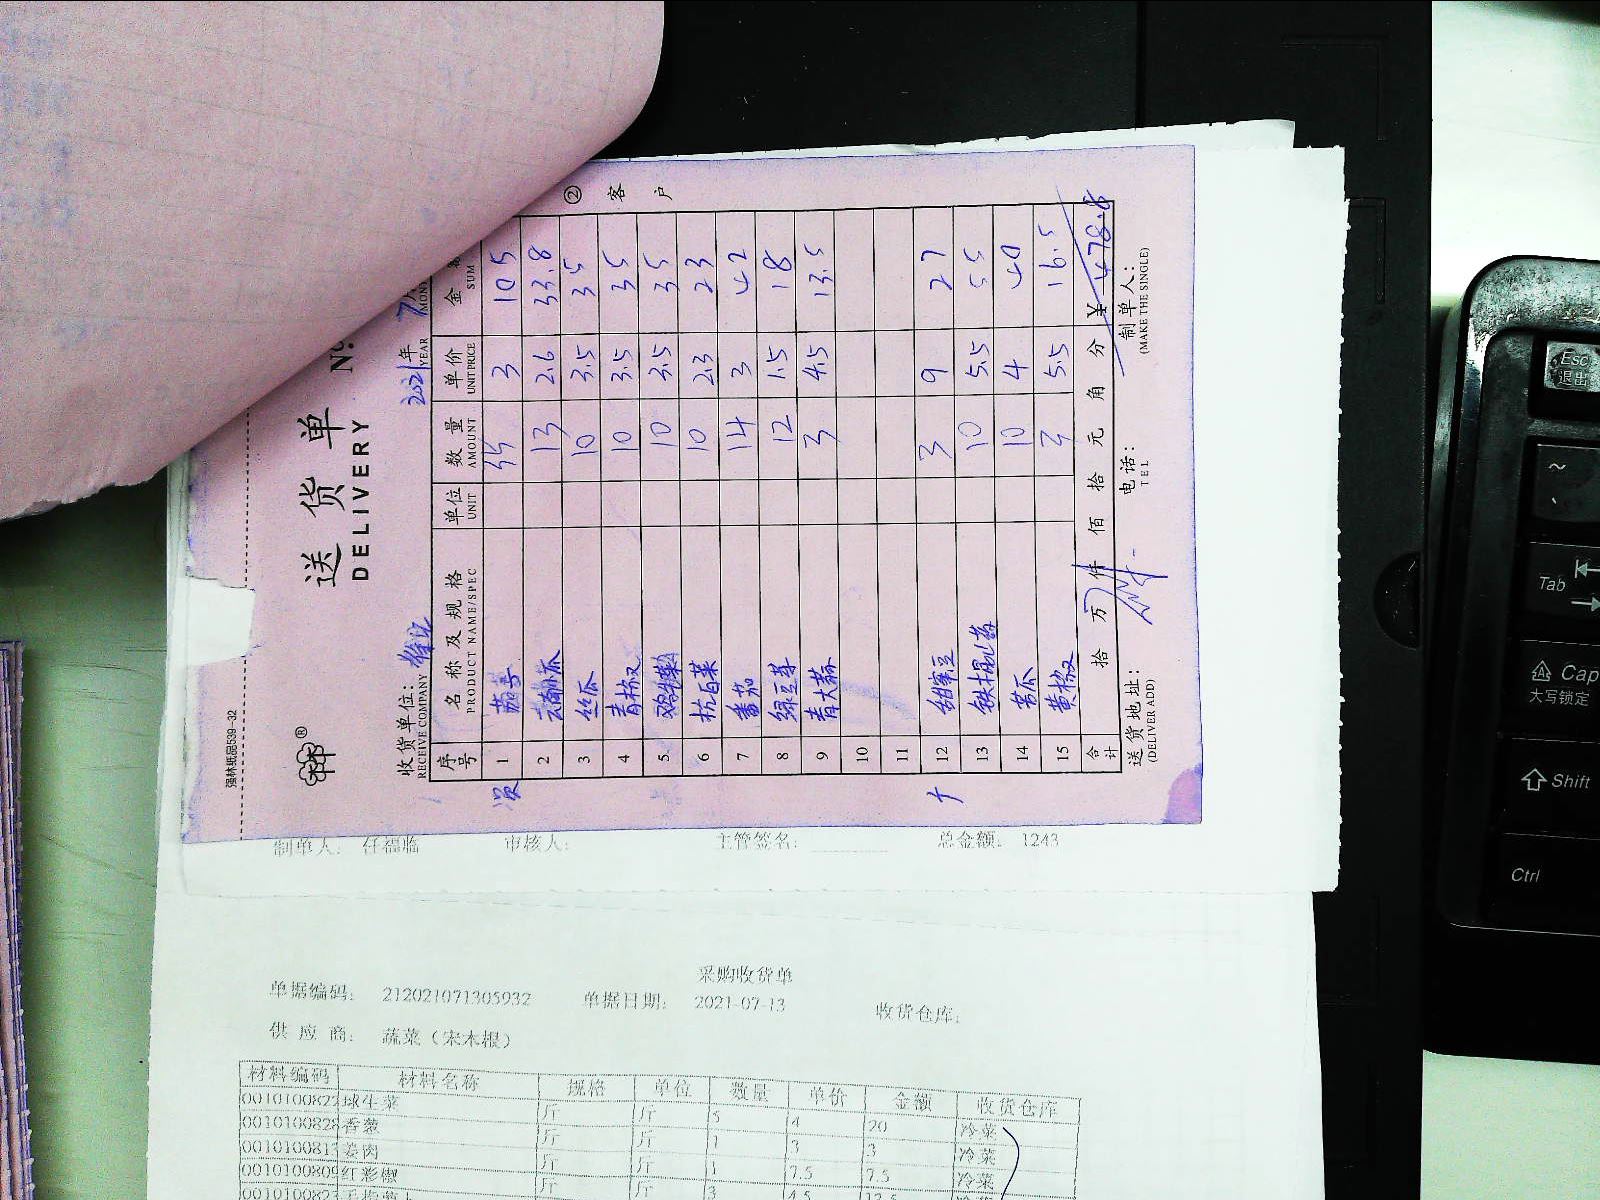 强林纸品539-32
送货单
DELIVERY
№
② 客户
收货单位：
RECEIVE COMPANY
2021年 7月
YEAR
序号 名称及规格 单位 数量 单价 金
PRODUCT NAME/SPEC UNIT AMOUNT UNIT PRICE SUM
1 茄子 35 3 105
2 云南小瓜 13 2.6 33.8
3 丝瓜 10 3.5 35
4 青椒 10 3.5 35
5 10 3.5 35
6 杭白菜 10 2.3 23
7 番茄 14 3 42
8 绿豆芽 12 1.5 18
9 青大蒜 3 4.5 13.5
10
11
12 甜蜜豆 3 9 27
13 铁棍山药 10 5.5 55
14 苦瓜 10 4 40
15 黄椒 3 5.5 16.5
合计 拾 万 仟 佰 拾 元 角 分 ¥ 478.8
送货地址： 电话： 制单人：
(DELIVER ADD) TEL (MAKE THE SINGLE)
制单人： 任福临 审核人： 主管签名： 总金额： 1243
采购收货单
单据编码： 212021071305932 单据日期： 2021-07-13 收货仓库：
供应商： 蔬菜（宋木根）
材料编码 材料名称 规格 单位 数量 单价 金额 收货仓库
0010100822 球生菜 斤 斤 5 4 20 冷菜
0010100828 香葱 斤 斤 1 3 3 冷菜
0010100813 姜肉 斤 斤 1 7.5 7.5 冷菜
0010100809 红彩椒 斤 斤 3 4.5
Esc
退出
~
Tab
Cap
大写锁定
Shift
Ctrl